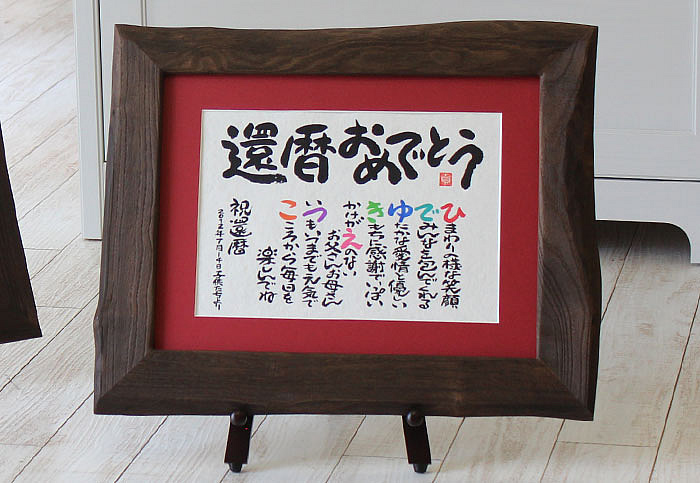 還暦おめでとう
ひまわりの様な笑顔
でみんなを包んでくれる
ゆたかな愛情と優しい
きもちに感謝でいっぱい
かけがえのない
お父さんお母さん
いつもいつまでも元気で
こころから毎日を
楽しんでね
祝還暦
2012年7月14日 子供たちより